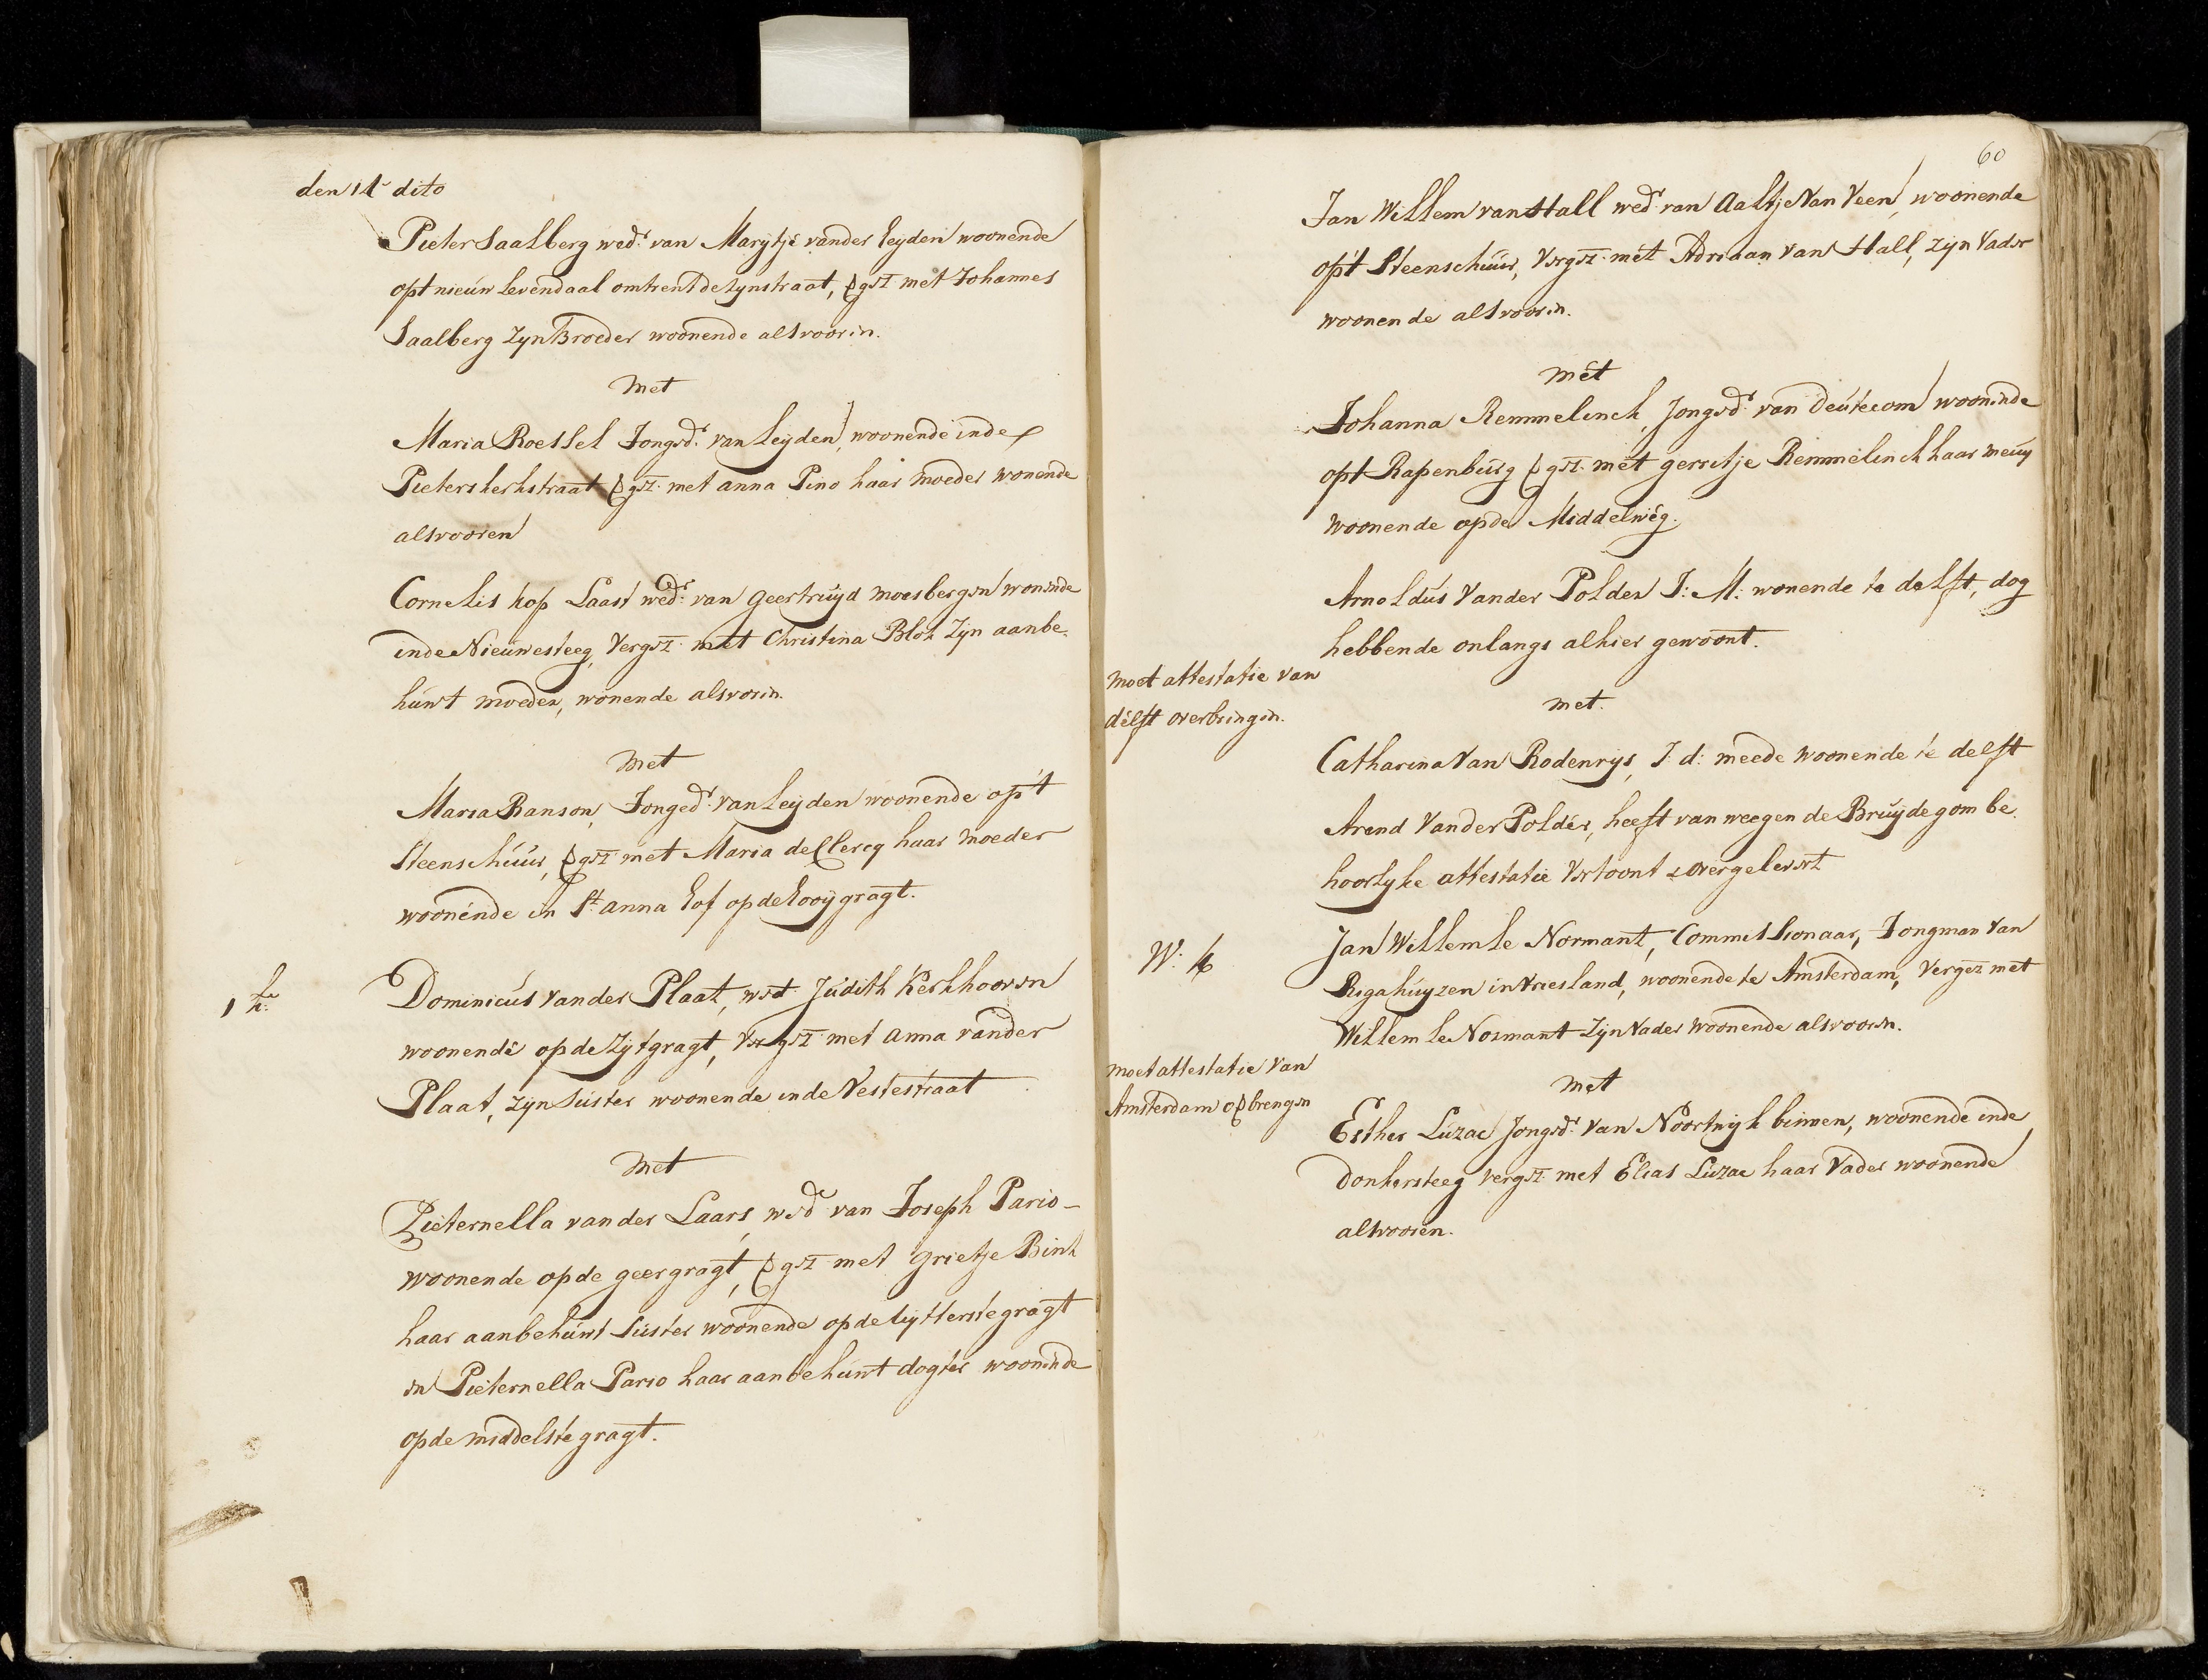 den 14 dito
Pieter Saalberg wed.r van Marijtje vander Leijden woonende
opt nieuw Levendaal omtrent de Zynstraat, vgez. met Johannes
Saalberg zyn Broeder woonende alsvooren.
met
Maria Roessel Jonged.r van Leijden, woonende inde
Pieterskerkstraat vgez. met anna Pino haar moeder wonende
alsvooren
Cornelis kop Laast wed.r van geertruijd moesbergen wonende
inde Nieuwesteeg, Vergez. met Christina Blok zijn aanbe-
huwt moeder, wonende alsvoren.
met
Maria Ranson, Jonged.r van Leijden woonende op't
Steenschuur, vgez. met Maria de Clercq haar moeder
woonende in S.t anna hof op de hooijgragt.
1 k.
Dominicus vander Plaat, wed. Judith Kerkhooven
woonende op de Zijtgragt, Vergez. met anna vander
Plaat, zyn Suster woonende inde Vestestraat
met
Pieternella vander Laars, wed. van Joseph Pario -
woonende op de geergragt, vgez. met grietje Bink
haar aanbehuwt Suster woonende op de uytterstegragt
en Pieternella Pario haar aanbehuwt dogter woonende
op de middelste gragt.
60
Jan Willem van Hall wed.r van Aaltje Van Veen, woonende
op't Steenschuur, Vergez. met Adriaan Van Hall, zijn Vader
woonende alsvooren.
met
Johanna Remmelinck, Jonged.r van Deutecom woonende
opt Rapenburg vgez. met gerritje Remmelinck haar meuy
woonende op de Middelweg.
Arnoldus Vander Polder J: M: wonende te delft, dog
hebbende onlangs alhier gewoont.
moet attestatie van
delft overbrengen.
met.
Catharina Van Rodenrys, J: d: meede woonende te delft
Arend Vander Polder, heeft van weegen de Bruijdegom be-
hoorlyke attestatie Vertoont & overgelevert
W:
Jan Willem le Normant, Commissionaar, Jongman Van
Rigahuyzen in Vriesland, woonende te Amsterdam, Vergez. met
Willem le Normant zijn Vader woonende alsvooren.
moet attestatie Van
Amsterdam opbrengen
met
Esther Luzac Jonged.r Van Noortwijk binnen, woonende inde
donkersteeg vergez. met Elias Luzac haar Vader woonende
alsvooren.